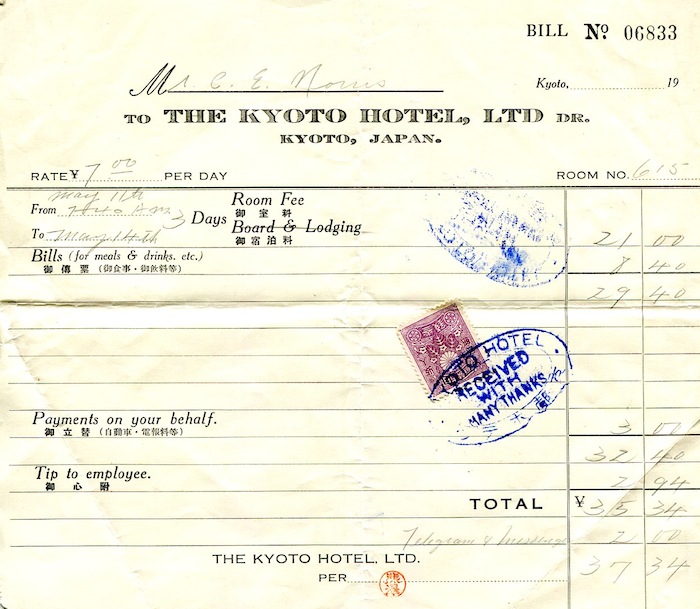 BILL No 06833
Mr C. E. Norris
Kyoto, 19
TO THE KYOTO HOTEL, LTD DR.
KYOTO, JAPAN.
RATE ¥ 7 00 PER DAY ROOM NO. 615
May 11th
From 10:40 AM 3 Days Room Fee
御室料
To Board & Lodging 21 00
御宿泊料
Bills (for meals & drinks. etc.) 8 40
御傳票 (御食事・御飲料等)
29 40
KYOTO HOTEL
RECEIVED
WITH
MANY THANKS
Payments on your behalf. 3 00
御立替 (自動車・電報料等)
32 40
Tip to employee. 2 94
御心附
TOTAL ¥ 35 34
Telegram & message 2 00
THE KYOTO HOTEL, LTD. 37 34
PER